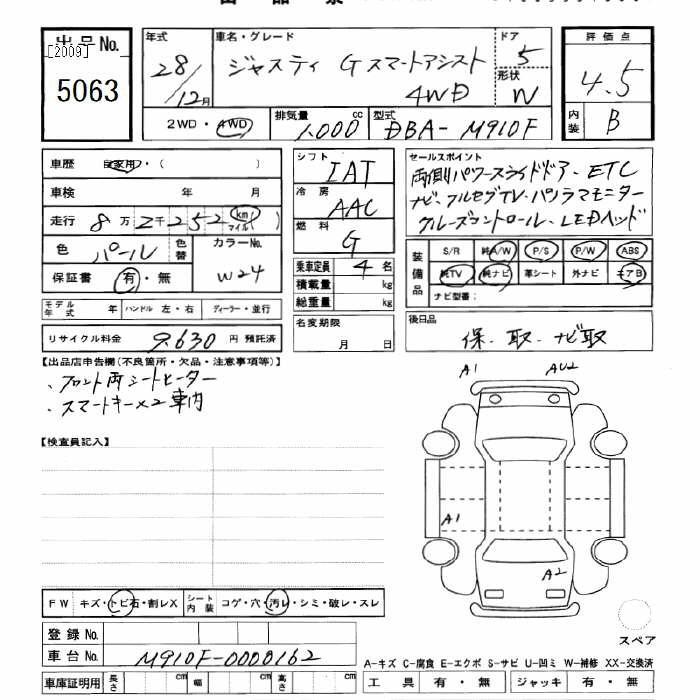 出品No.
[2009]
5063
年式
28/12月
車名・グレード
ジャスティ Gスマートアシスト
4WD
ドア
5
形状
W
評価点
4.5
内装
B
2WD・4WD
排気量
1,000 cc
型式
DBA-M910F
車歴 自家用・( )
車検 年 月
走行 8万2千252 km マイル ( )
色 パール
色替
カラーNo.
W24
保証書 有・無
モデル年式 年 ハンドル 左・右 ディーラー・並行
リサイクル料金 9,630 円 預託済
シフト
IAT
冷房
AAC
燃料
G
乗車定員 4 名
積載量 kg
総重量 kg
名変期限
月 日
セールスポイント
両側パワースライドドア、ETC
ナビ、フルセグTV、パノラマモニター
クルーズコントロール、LEDヘッド
装備品
S/R 純A/W P/S P/W ABS
純TV 純ナビ 革シート 外ナビ エアB
ナビ型番:
後日品
保、取、ナビ取
【出品店申告欄(不良箇所・欠品・注意事項等)】
、フロント両シートヒーター
、スマートキー×2車内
【検査員記入】
A1
AU2
A1
A2
FW キズ・トビ石・割レX シート内装 コゲ・穴・汚レ・シミ・破レ・スレ
登録No.
車台No. M910F-0000162
車庫証明用 長さ cm 幅 cm 高さ cm
スペア
A-キズ C-腐食 E-エクボ S-サビ U-凹ミ W-補修 XX-交換済
工具 有・無 ジャッキ 有・無